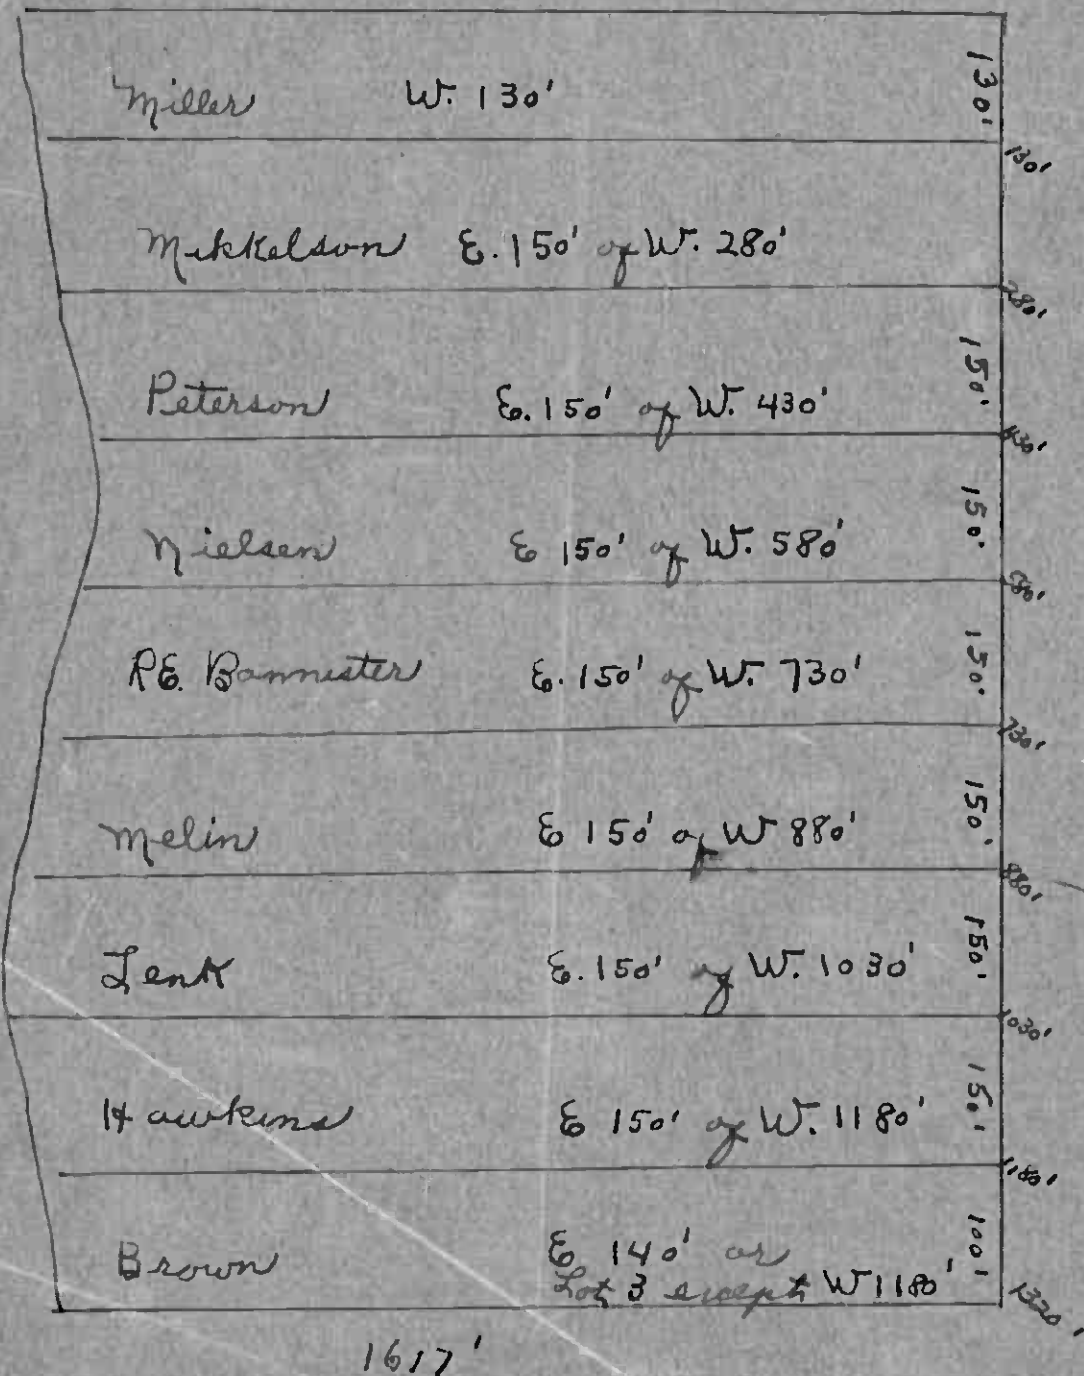 Miller W. 130' 130'
130'
Mikkelson E. 150' of W. 280'
280'
Peterson E. 150' of W. 430' 150'
430'
Nielsen E 150' of W. 580' 150'
580'
R.E. Bannister E. 150' of W. 730' 150'
730'
Melin E 150' of W 880' 150'
880'
Lenk E. 150' of W. 1030' 150'
1030'
Hawkins E 150' of W. 1180' 150'
1180'
Brown E 140' or 100'
Lot 3 except W 1180'
1320'
1617'